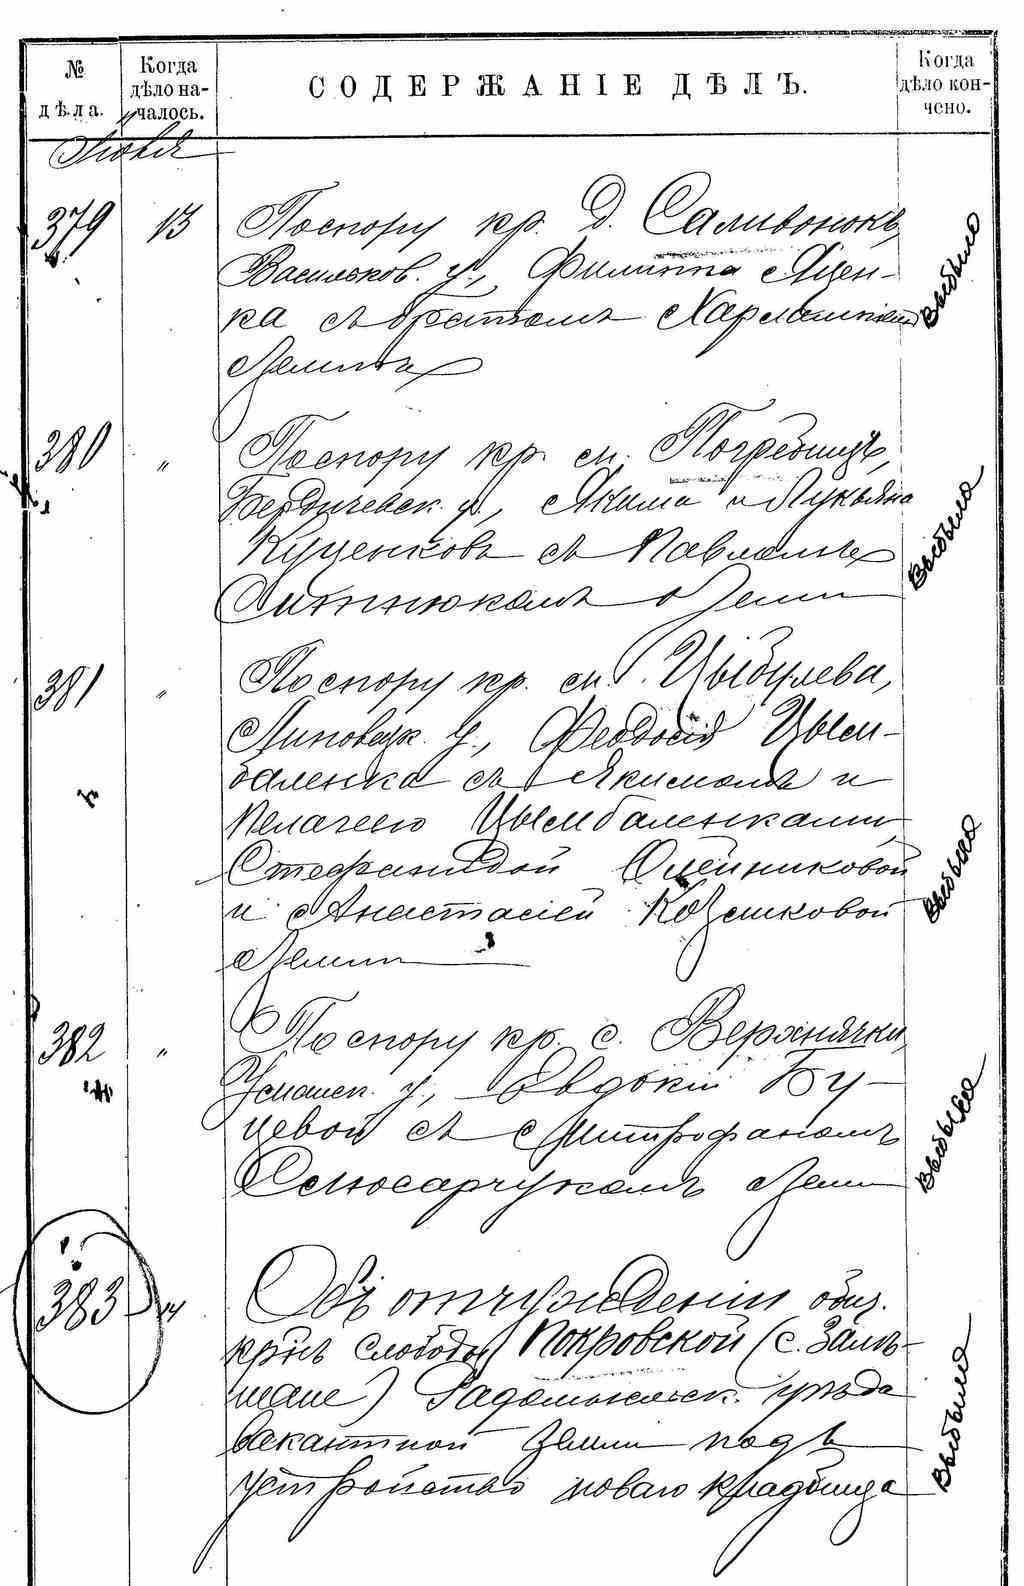 № дѣла.
Когда дѣло на-
чалось.
СОДЕРЖАНІЕ ДѢЛЪ.
Когда дѣло кон-
чено.
379 13 По спору кр. д. Саливонокъ,
Васильков. у., Филиппа Яцен-
ка съ братомъ Харлампіемъ
о земли
Выбыло
380 " По спору кр. с. Погребищъ,
Бердичевск. у., Якима и Лукьяна
Куценковъ съ Павломъ
Ситнюкомъ о земли
Выбыло
381 " По спору кр. м. Цыбулева,
Липовецк. у., Феодосія Цым-
баленка съ Якимомъ и
Пелагеею Цымбаленками,
Стефанидой Олейниковой
и Анастасіей
о земли
Выбыло
382 " По спору кр. с. Верхнячки,
Уманск. у., Евдокіи Бу-
цевой съ Митрофаномъ
Слюсарчукомъ о земли
Выбыло
383 14 Объ отчужденіи общ.
крнъ слободы Покровской (с. Залѣ-
шане) Радомысльск. уѣзда
вакантной земли подъ
устройство новаго кладбища
Выбыло